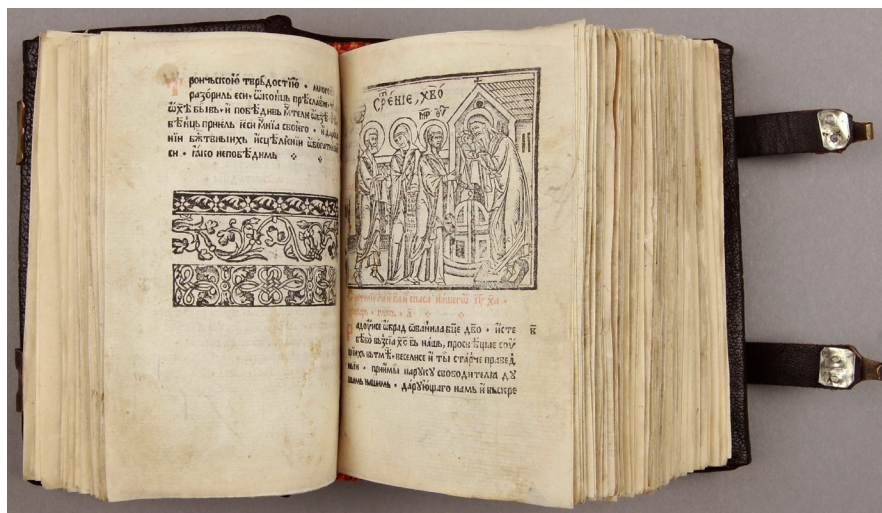 вончьскою твръдостїю • мног
разориль еси, ѿконць прѣславн
ѿхѣ бывъ • и побѣдивь мтелꙗ
вѣнць приель иси мнїа своиго • и да
нїи бжтвныихь исцѣлєнїи ѡбогат
си • ꙗко непобѣдимь
СРѢ́ЕНІЕ, ХВО
МР ѲУ
спаса нашего їу ха •
• глась • а
Радоуисе ѡбрад ованнїа бце дво • исте
бѣво вьзсїа хс бь нашь, просвѣщае соу
щїихь вьтмѣ • веселисе и ты старче правед
нїи • прїимы наруку свободителꙗ ду
шамь нашимь • дарующаго намь и вьскре